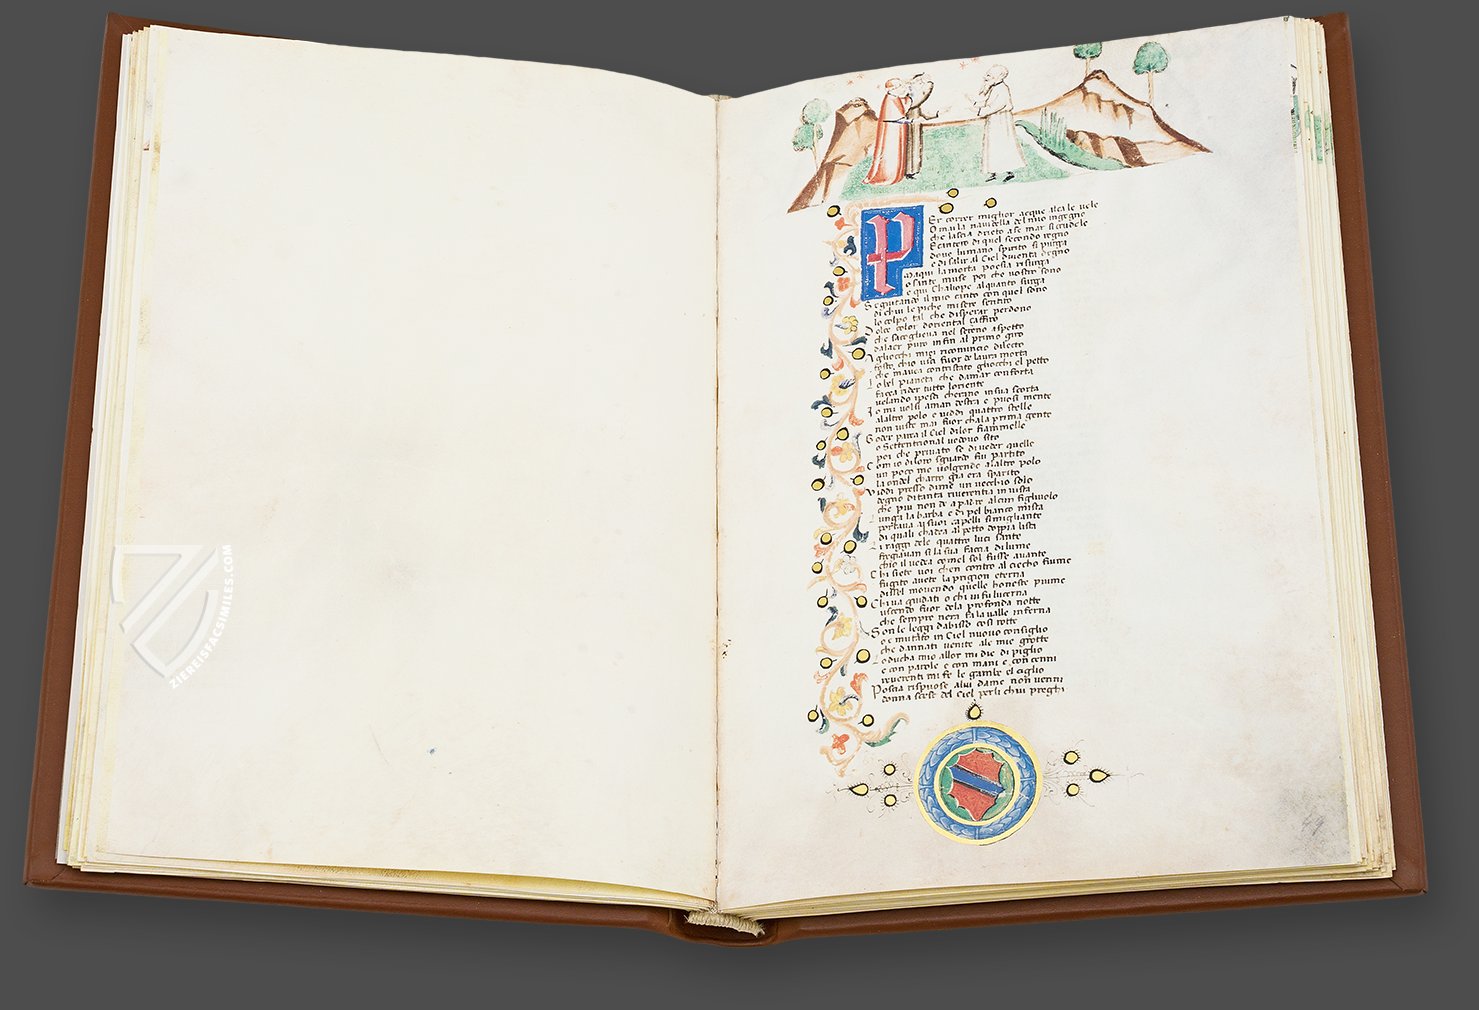 Er correr miglior acque alcale vele
Omai la navicella del mio ingegno
che lascia drieto ase mar si crudele
E cantero di quel secondo regno
dove lumano spirito si purga
e di salir al Ciel diventa degno
Ma qui la morta poesia risurga
o sante muse poi che vostro sono
e qui Chaliope alquanto surga
Seguitando il mio canto con quel sono
di chui le piche misere sentiro
lo colpo tal che disperar perdono
Dolce color doriental zaffiro
che saccoglieva nel sereno aspetto
dalaer puro infin al primo giro
Agliocchi miei ricomincio dilecto
tosto chio usci fuor de laura morta
che mavea contristato gliocchi el petto
Lo bel pianeta che damar conforta
facea rider tutto loriente
velando ipesci cherano insua scorta
Io mi volsi aman destra e puosi mente
alaltro polo e viddi quattro stelle
non viste mai fuor chala prima gente
Goder parea il Ciel dilor fiammelle
o Settentrional vedovo sito
poi che privato se di veder quelle
Com io diloro sguardo fui partito
un poco me volgendo alaltro polo
la ondel charro gia era sparito
Viddi presso dime un vecchio solo
degno ditanta riverentia invista
che piu non de a padre alcun figliuolo
Lunga la barba e di pel bianco mista
portava aisuoi capelli simigliante
di quali chadea alpetto doppia lista
Li raggi dele quattro luci sante
fregiavan si la sua faccia dilume
chio il vedea comel sol fusse avante
Chi siete voi chen contro al ciecho fiume
fugito avete la prigion eterna
dissel movendo quelle honeste piume
Chi va guidati o chi vi fu lucerna
uscendo fuor dela profonda notte
che sempre nera fa la valle inferna
Son le leggi dabisso cosi rotte
o e mutato in Ciel nuovo consiglio
che dannati venite ale mie grotte
Lo ducha mio allor mi die di piglio
e con parole e con mani e con cenni
reverenti mi fe le gambe el ciglio
Poscia rispuose alui dame non venni
donna scese del Ciel perli chui preghi
49
ZIEREISFACSIMILES.COM